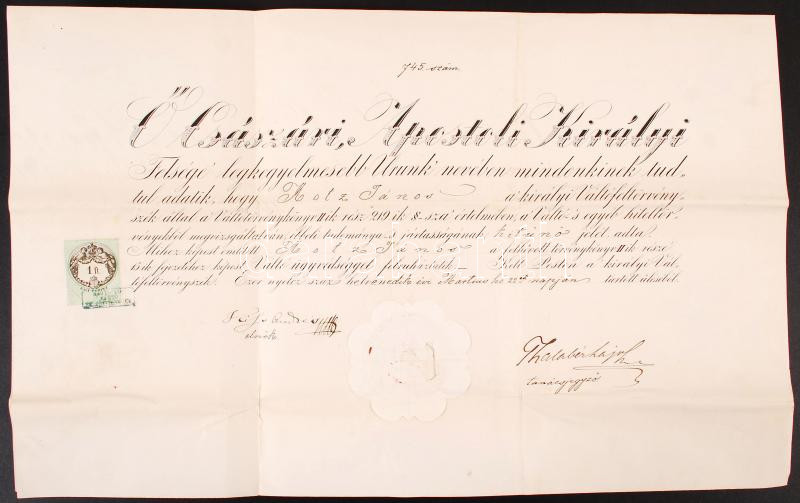 745. szám
Ő Császári, Apostoli Királyi
Felsége legkegyelmesebb Urunk nevében mindenkinek tud-
tul adatik, hogy Hotz János a királyi Váltófeltörvény-
szék által a Váltótörvénykönyv II ik rész 219 ik §-sza értelmében, a Váltó s egyéb hiteltör-
vényekből megvizsgáltatván, ebbeli tudománya s jártasságának kitünő jelét adta.
Mihez képest említett Hotz János a felhívott törvénykönyv II ik része
15 ik fejezetéhez képest Váltó ügyvédségre felruháztatik. Kelt Pesten a királyi Vál-
tófeltörvényszék Ezer nyolcz száz hetvenedik évi Martius hó 22ik napján tartott ülésből.
1 ft.
elnök
tanácsjegyző